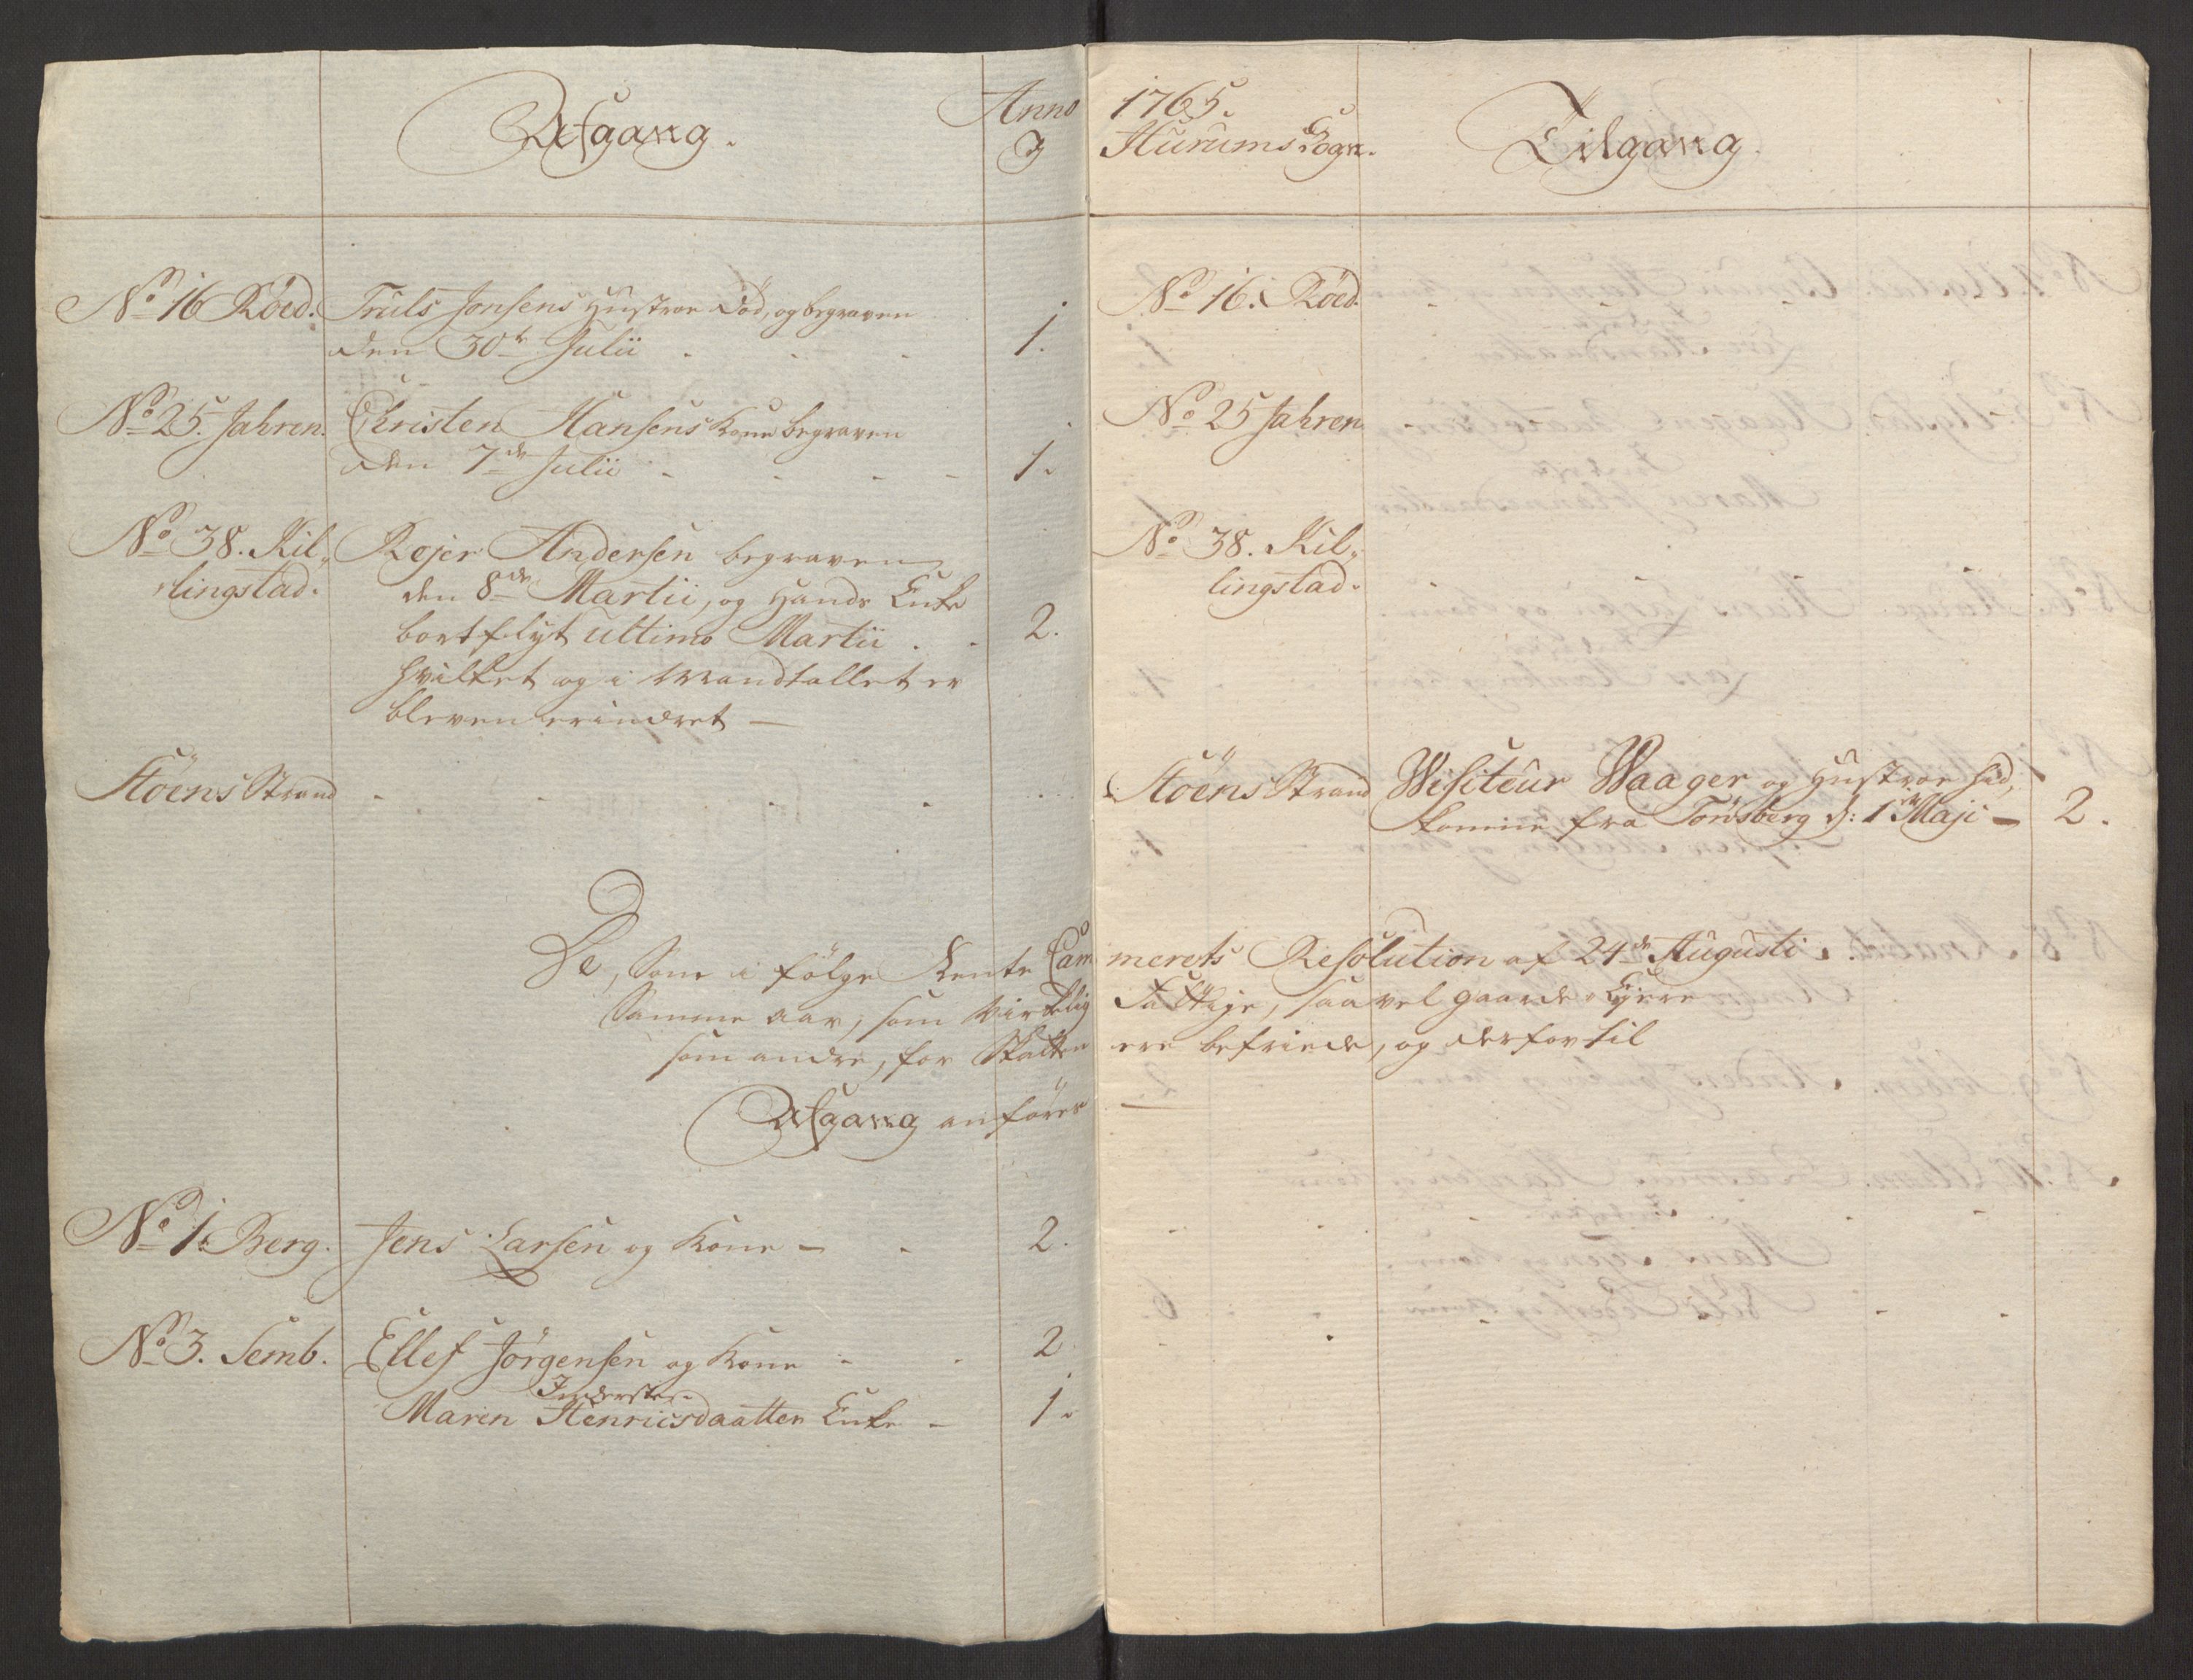 Afgang.
Anno
I
No 16 Röed. Truls Jonsens Hustroe död, og begraven
den 30te Julii 1.
No 25. Jahren. Christen Hansens Kone begraven
den 7de Julii 1.
No 38. Kil-
lingstad.
Rejer Andersen begraven
den 8de Martii, og Hands Enke
bortflyt ultimo Martii 2.
hvilket og i Mandtallet er
bleven erindret
Höens Strand
De, som i følge Rente Cam
Samme aar, som virkelig
som andre, for Skatten
Afgang anføres
No 1. Berg. Jens Larsen og Kone 2.
No 3. Semb. Ellef Jörgensen og Kone 2
Inderster
Maren Henricsdaatter Enke 1.
1765.
Hurums Sogn.
Tilgang.
No 16. Röed.
No 25 Jahren
No 38. Kil-
lingstad.
Höens Strand Wisiteur Waager og Hustroe hid,
komne fra Tönsberg d: 1de Maji 2.
merets Resolution af 24de Augusti
Fattige, saavel gaarde Ejere
ere befriede, og derfor til